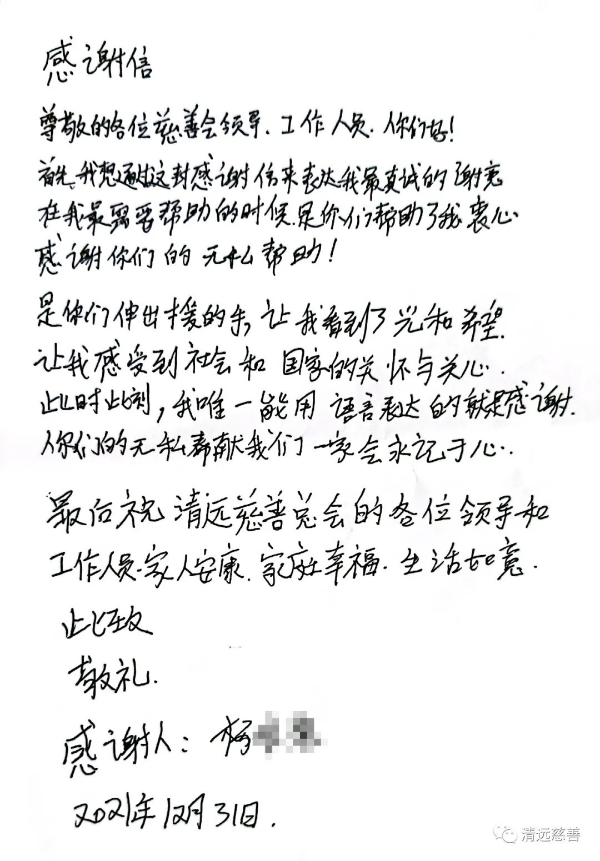 感谢信
尊敬的各位慈善会领导.工作人员.你们好!
首先,我想通过这封感谢信来表达我最真诚的谢意
在我最需要帮助的时候.是你们帮助了我衷心
感谢你们的无私帮助!
是你们伸出援的手,让我看到了光和希望.
让我感受到社会和国家的关怀与关心.
此时此刻,我唯一能用语言表达的就是感谢.
你们的无私奉献我们一家会永记于心.
最后祝清远慈善总会的各位领导和
工作人员.家人安康.家庭幸福.生活如意.
此致
敬礼.
感谢人:杨
2021年12月31日.
清远慈善